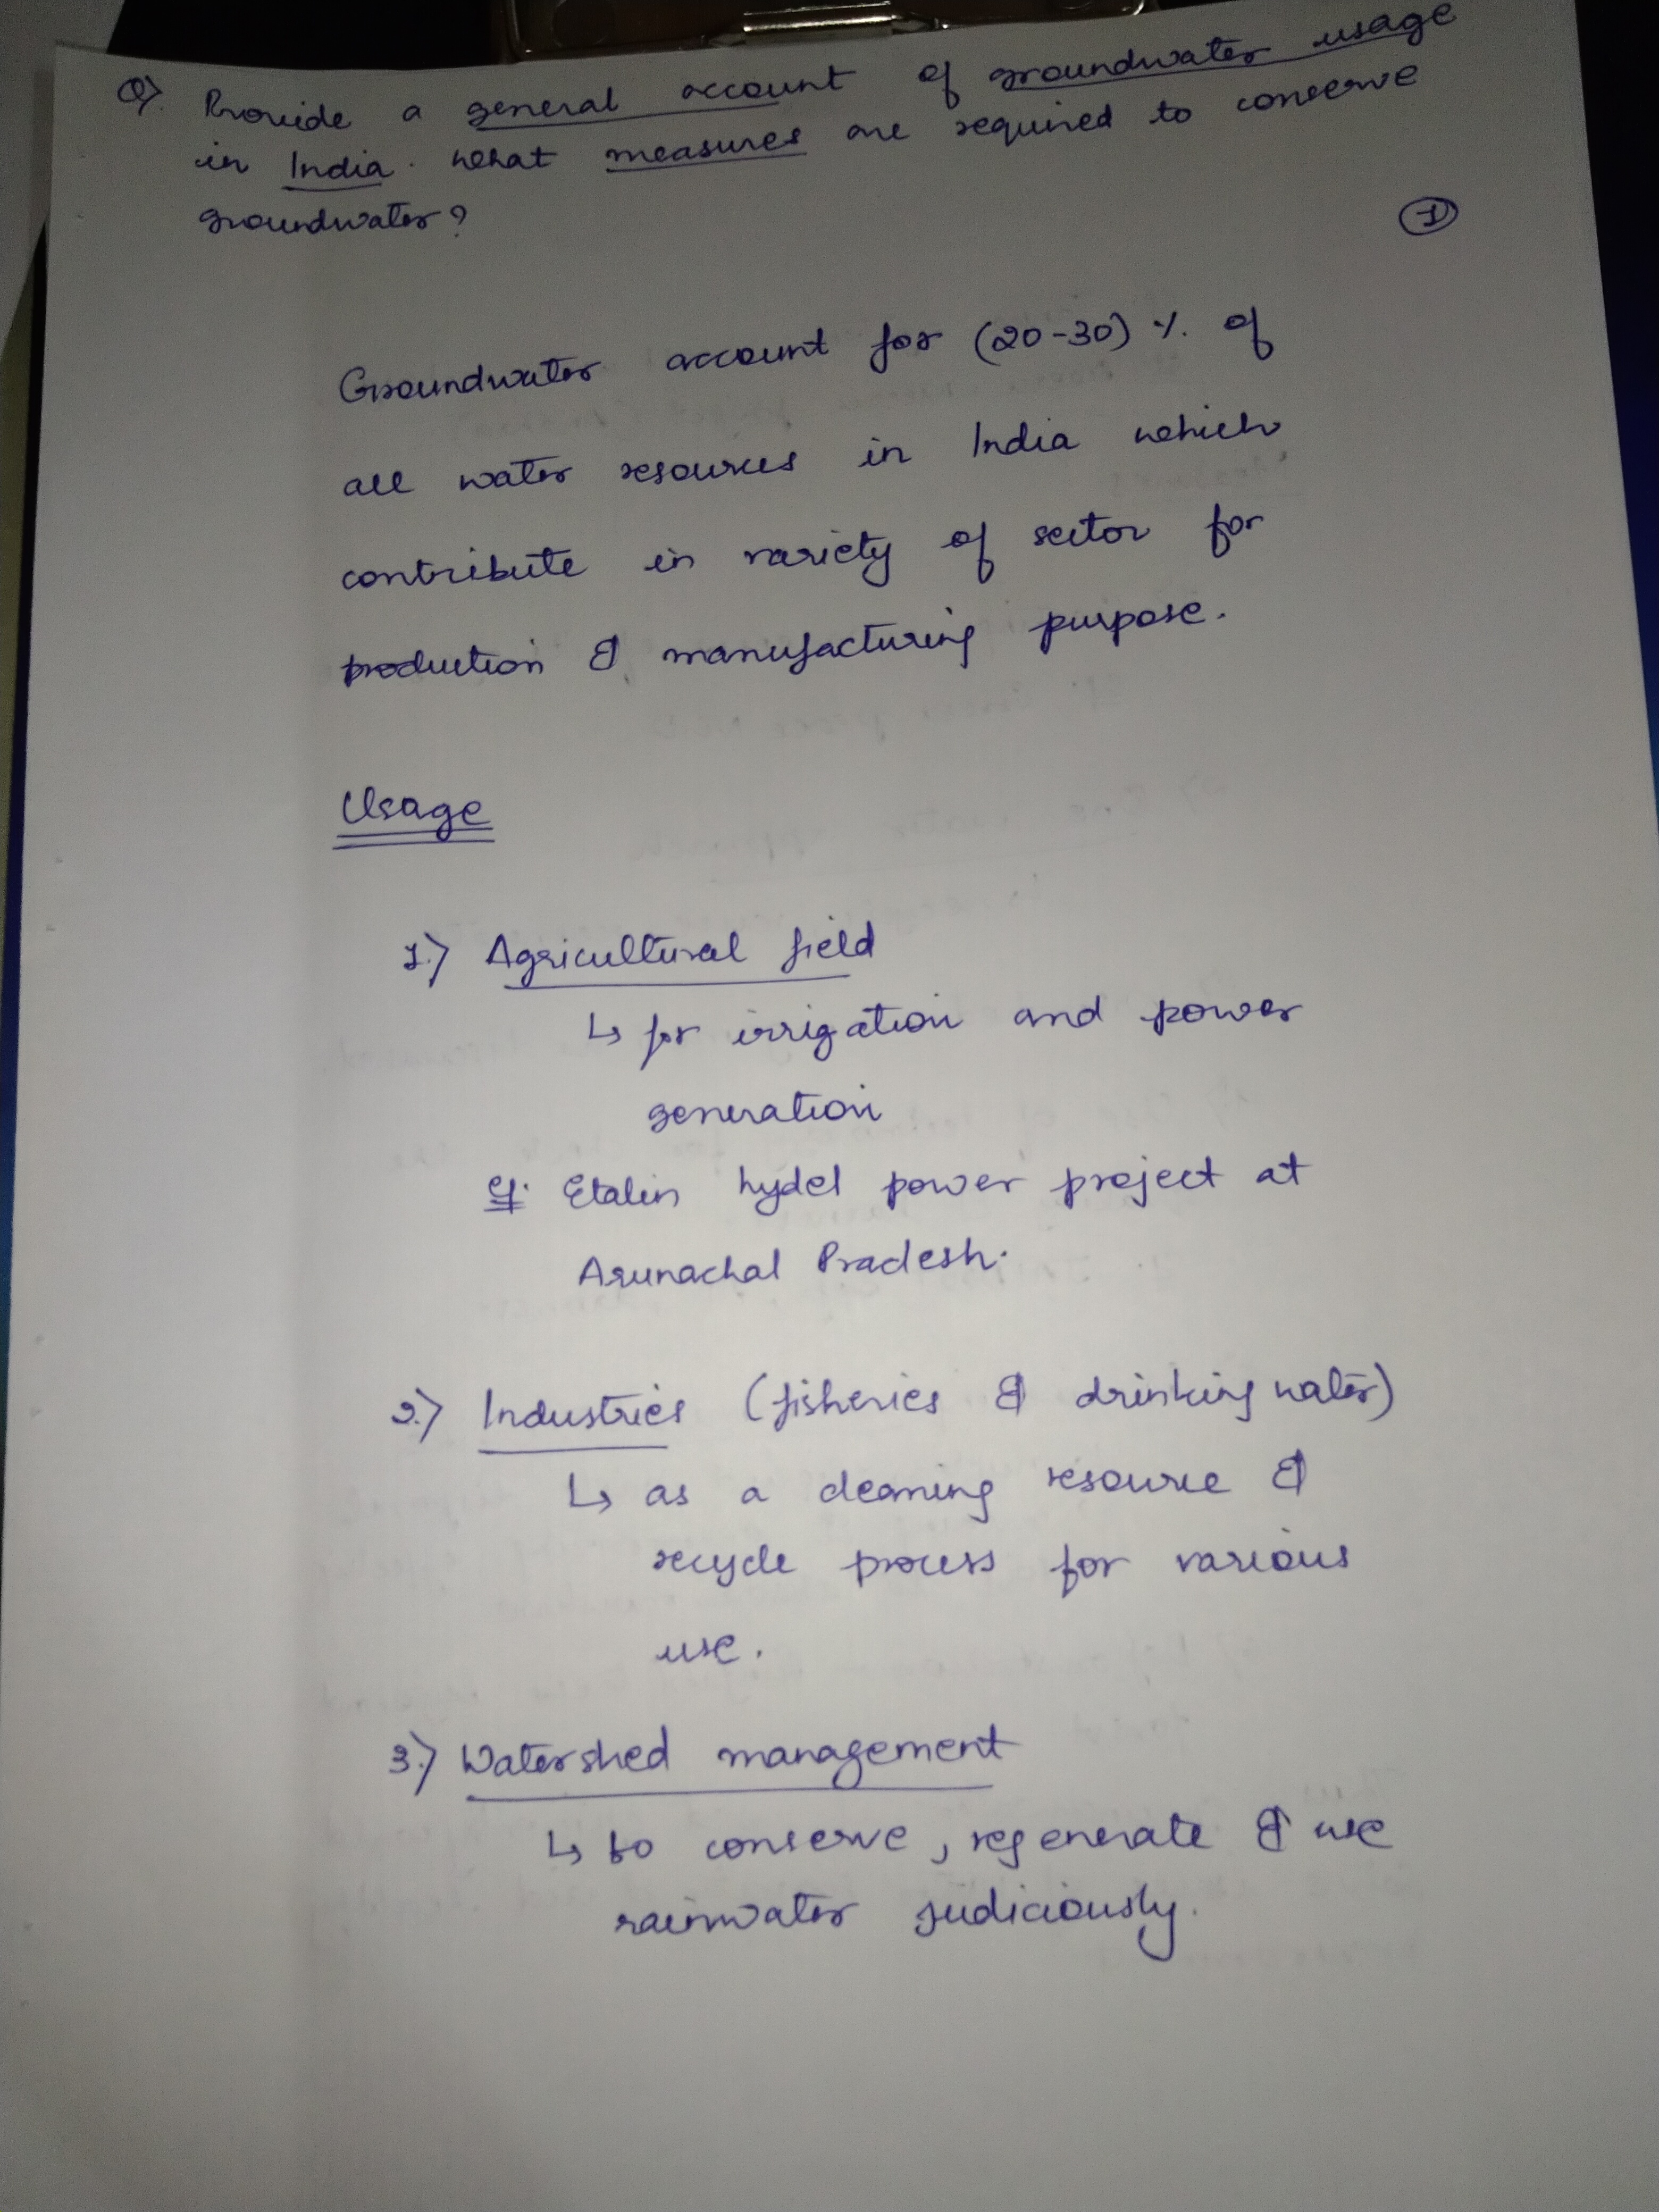 Q) Provide a general account of groundwater usage
in India. What measures are required to conserve
groundwater?
1
Groundwater account for (20-30) % of
all water resources in India which
contribute in variety of sector for
production & manufacturing purpose.
Usage
1.) Agricultural field
↳ for irrigation and power
generation
eg. Etalin hydel power project at
Arunachal Pradesh.
2.) Industries (fisheries & drinking water)
↳ as a cleaning resource &
recycle process for various
use.
3.) Watershed management
↳ to conserve, regenerate & use
rainwater judiciously.